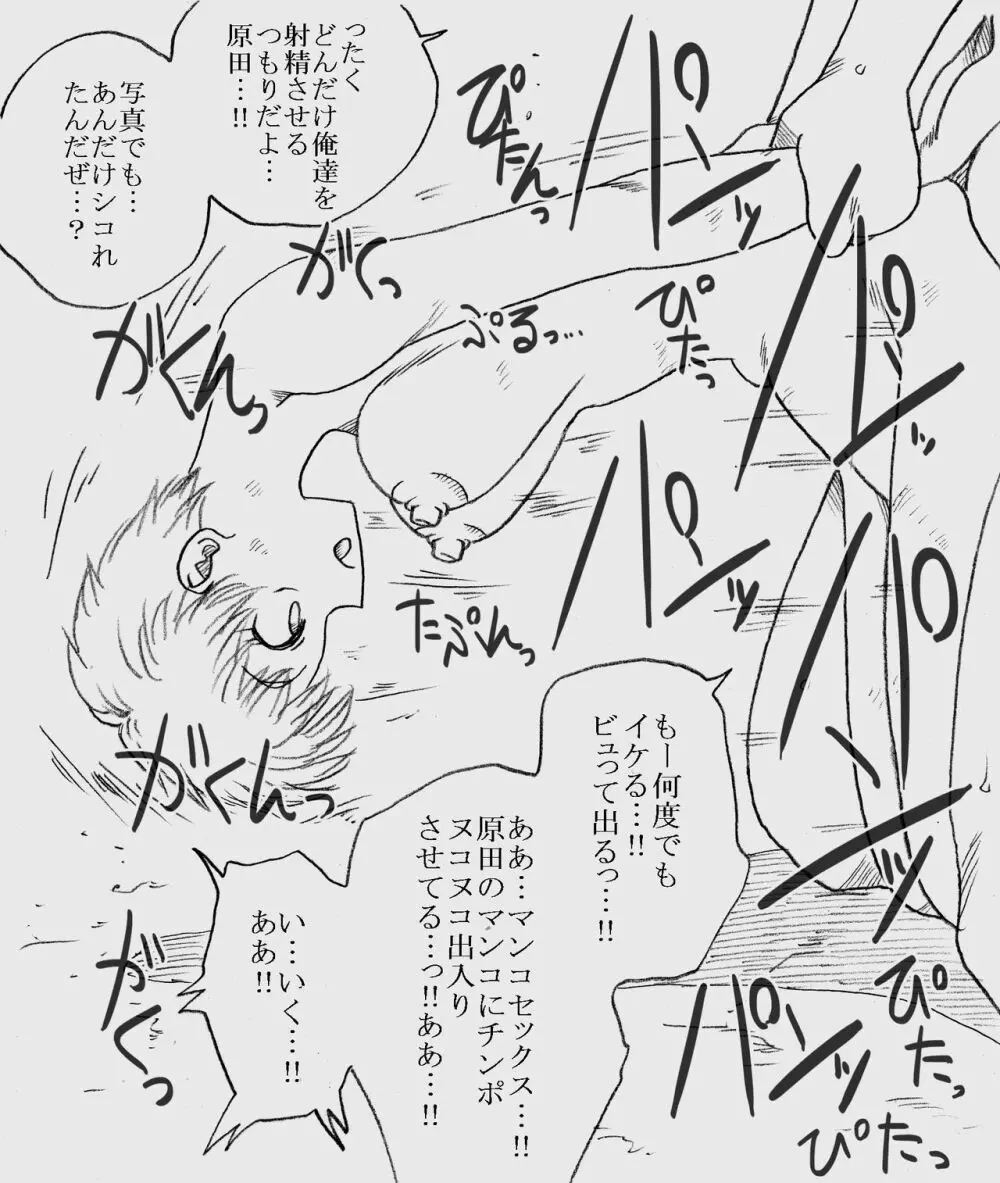 ったく
どんだけ俺達を
射精させる
つもりだよ…
原田…!!
写真でも…
あんだけシコれ
たんだぜ…？
ぴたんっ
パンッ
がくっ
がくんっ
ぷるっ…
ぴたっ
パンッ
パンッ
たぷんっ
パンッ
がくんっ
がくっ
もー何度でも
イケる…!!
ビュって出るっ…!!
ああ…マンコセックス…!!
原田のマンコにチンポ
ヌコヌコ出入り
させてる…っ!!ああ…!!
い…いく…!!
ああ!!
パンッ
ぴたっ
ぴたっ